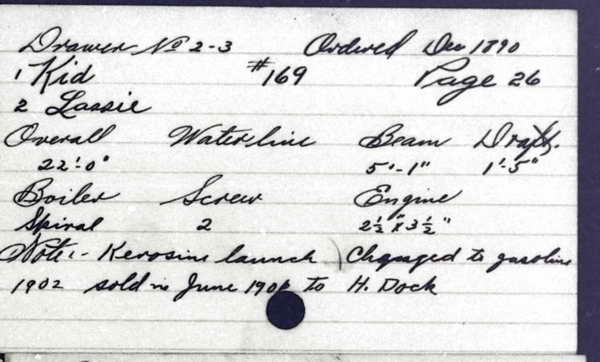 Drawer No 2-3 Ordered Dec 1890
1 Kid #169 Page 26
2 Lassie
Overall Waterline Beam Draft.
22'-0" 5'-1" 1'-5"
Boiler Screw Engine
Spiral 2 2½" x 3½"
Note:- Kerosine launch Changed to gasoline
1902 sold in June to H. Dock